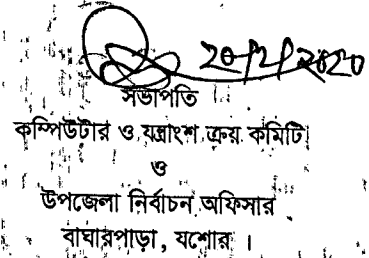 ২০/২/২০২০
সভাপতি
কম্পিউটার ও যন্ত্রাংশ ক্রয় কমিটি
ও
উপজেলা নির্বাচন অফিসার
বাঘারপাড়া, যশোর ।